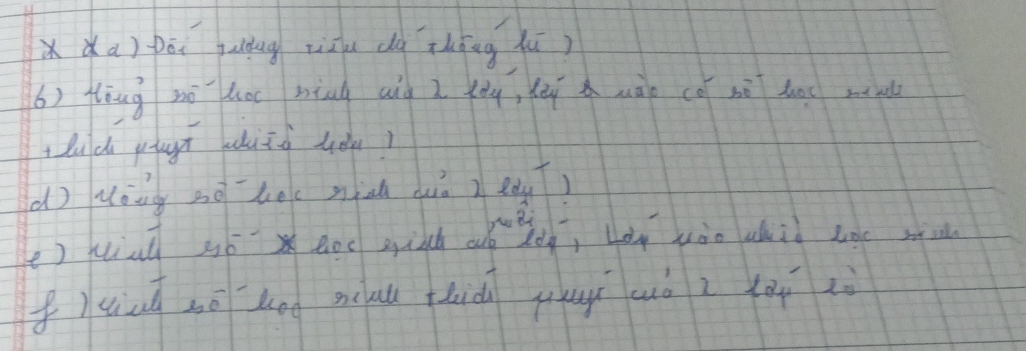 a) Đối tượng tiêu đề thống kê?
b) Tổng số học sinh của 2 lớp, lớp nào có số học sinh
thích nhiều hơn?
d) Tổng số học sinh của 2 lớp?
e) Tính số học sinh của mỗi lớp, Lớp nào nhiều học sinh
f) Tính số học sinh thích của 2 lớp là